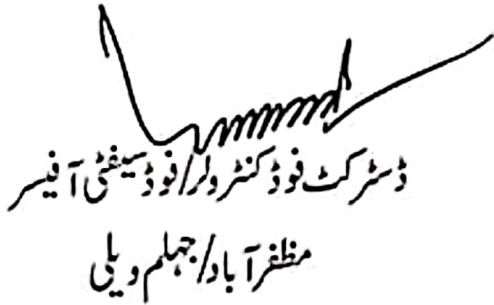 ڈسٹرکٹ فوڈ کنٹرولر/فوڈ سیفٹی آفیسر
مظفرآباد/جہلم ویلی